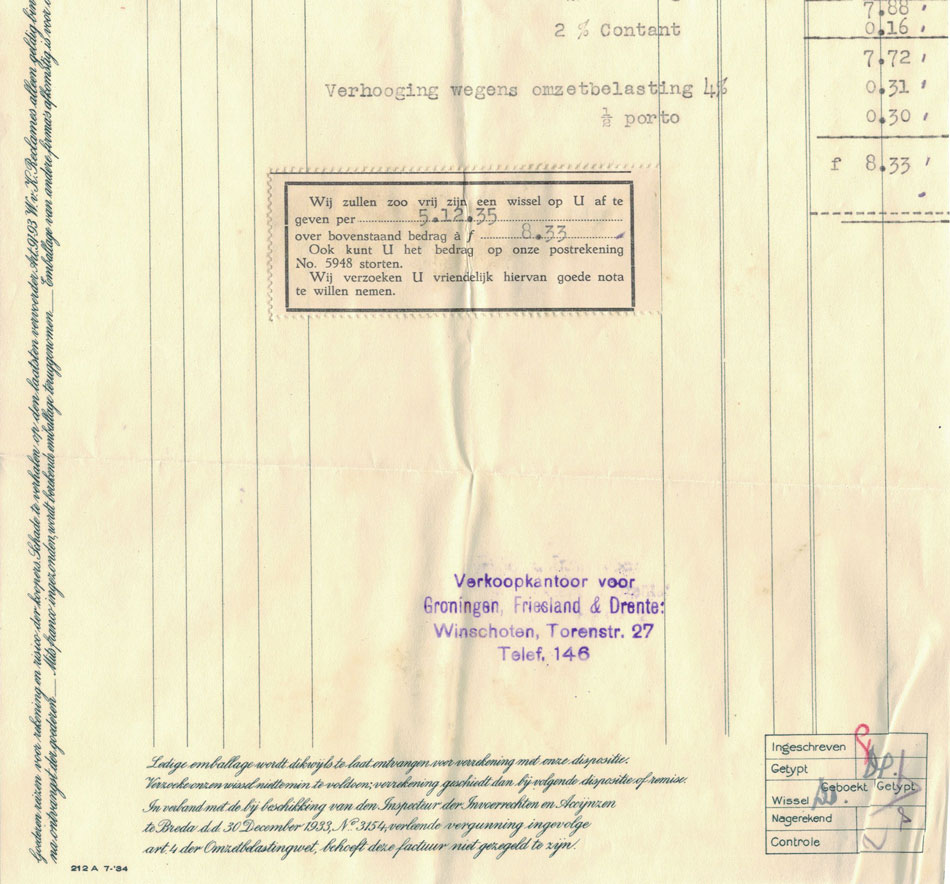 7.88 '
2 % Contant 0.16 '
7.72 '
Verhooging wegens omzetbelasting 4% 0.31 '
½ porto 0.30 '
f 8.33 '
Wij zullen zoo vrij zijn een wissel op U af te
geven per 5.12.35
over bovenstaand bedrag à f 8.33
Ook kunt U het bedrag op onze postrekening
No. 5948 storten.
Wij verzoeken U vriendelijk hiervan goede nota
te willen nemen.
Verkoopkantoor voor
Groningen, Friesland & Drente:
Winschoten, Torenstr. 27
Telef. 146
Goederen reizen voor rekening en risico der koopers. Schade te verhalen op den laatsten vervoerder Art. 91/93 W. v. K. Reclames alleen geldig
na ontvangst der goederen. Mits franco ingezonden, wordt berekende emballage teruggenomen. Emballage van andere firma's afkomstig is voor
Ledige emballage wordt dikwijls te laat ontvangen voor verrekening met onze dispositie.
Verzoeke onzen wissel niettemin te voldoen; verrekening geschiedt dan bij volgende dispositie of remise.
In verband met de bij beschikking van den Inspecteur der Invoerrechten en Accijnzen
te Breda d.d. 30 December 1933, No. 3154, verleende vergunning ingevolge
art. 4 der Omzetbelastingwet, behoeft deze factuur niet gezegeld te zijn.
212 A 7-'34
Ingeschreven
Getypt
Geboekt Getypt
Wissel
Nagerekend
Controle